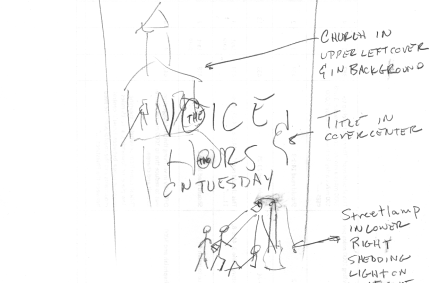 CHURCH IN
UPPER LEFT COVER
& IN BACKGROUND
THE
HOURS
ON TUESDAY
TITLE IN
COVER CENTER
Streetlamp
IN LOWER
RIGHT
SHEDDING
LIGHT ON